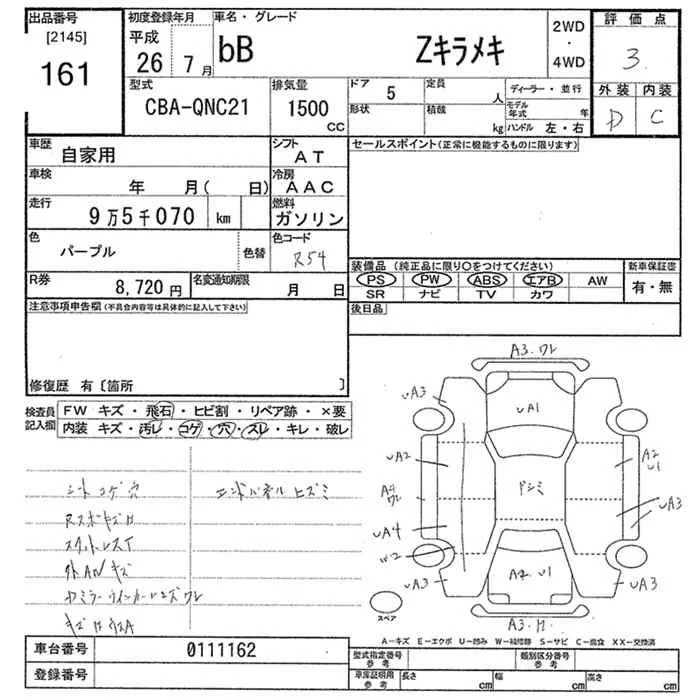 出品番号
[2145]
161
初度登録年月
平成
26 7月
車名・グレード
bB Zキラメキ
2WD
・
4WD
評価点
3.
外装 内装
D C
型式
CBA-QNC21
排気量
1500
CC
ドア 5
形状
定員
人
積載
kg
ディーラー・並行
モデル年式 年
ハンドル 左・右
車歴
自家用
シフト
AT
車検
年 月( 日)
冷房
AAC
走行
9万5千070 km
燃料
ガソリン
色
パープル
色替
色コード
R54
R券
8,720円
名変通知期限
月 日
セールスポイント(正常に機能するものに限ります)
装備品(純正品に限り○をつけてください)
PS PW ABS エアB AW
SR ナビ TV カワ
新車保証書
有・無
後日品
注意事項申告欄(不具合内容等は具体的に記入して下さい)
修復歴 有〔箇所 〕
検査員記入欄
FW キズ・飛石・ヒビ割・リペア跡・×要
内装 キズ・汚レ・コゲ・穴・スレ・キレ・破レ
シートコゲ穴
エンドパネルヒズミ
外AWキズ
A3.ワレ
UA3
UA3
UA1
UA2
A2
U1
ドシミ
A4
ワレ
UA3
UA4
W2
UA3
UA3
A2 U1
スペア
A-キズ E-エクボ U-凹み W-補修跡 S-サビ C-腐食 XX-交換済
車台番号
0111162
登録番号
型式指定番号
参考
類別区分番号
参考
車庫証明用
参考
長さ cm
幅 cm
高さ cm